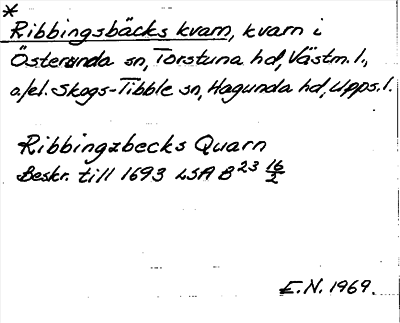 *
Ribbingsbäcks kvarn, kvarn i
Österunda sn, Torstuna hd, Västm. l.,
a/el. Skogs-Tibble sn, Hagunda hd, Upps. l.
Ribbingzbecks Quarn
Beskr. till 1693 LSA B 23 16/2
E.N. 1969.